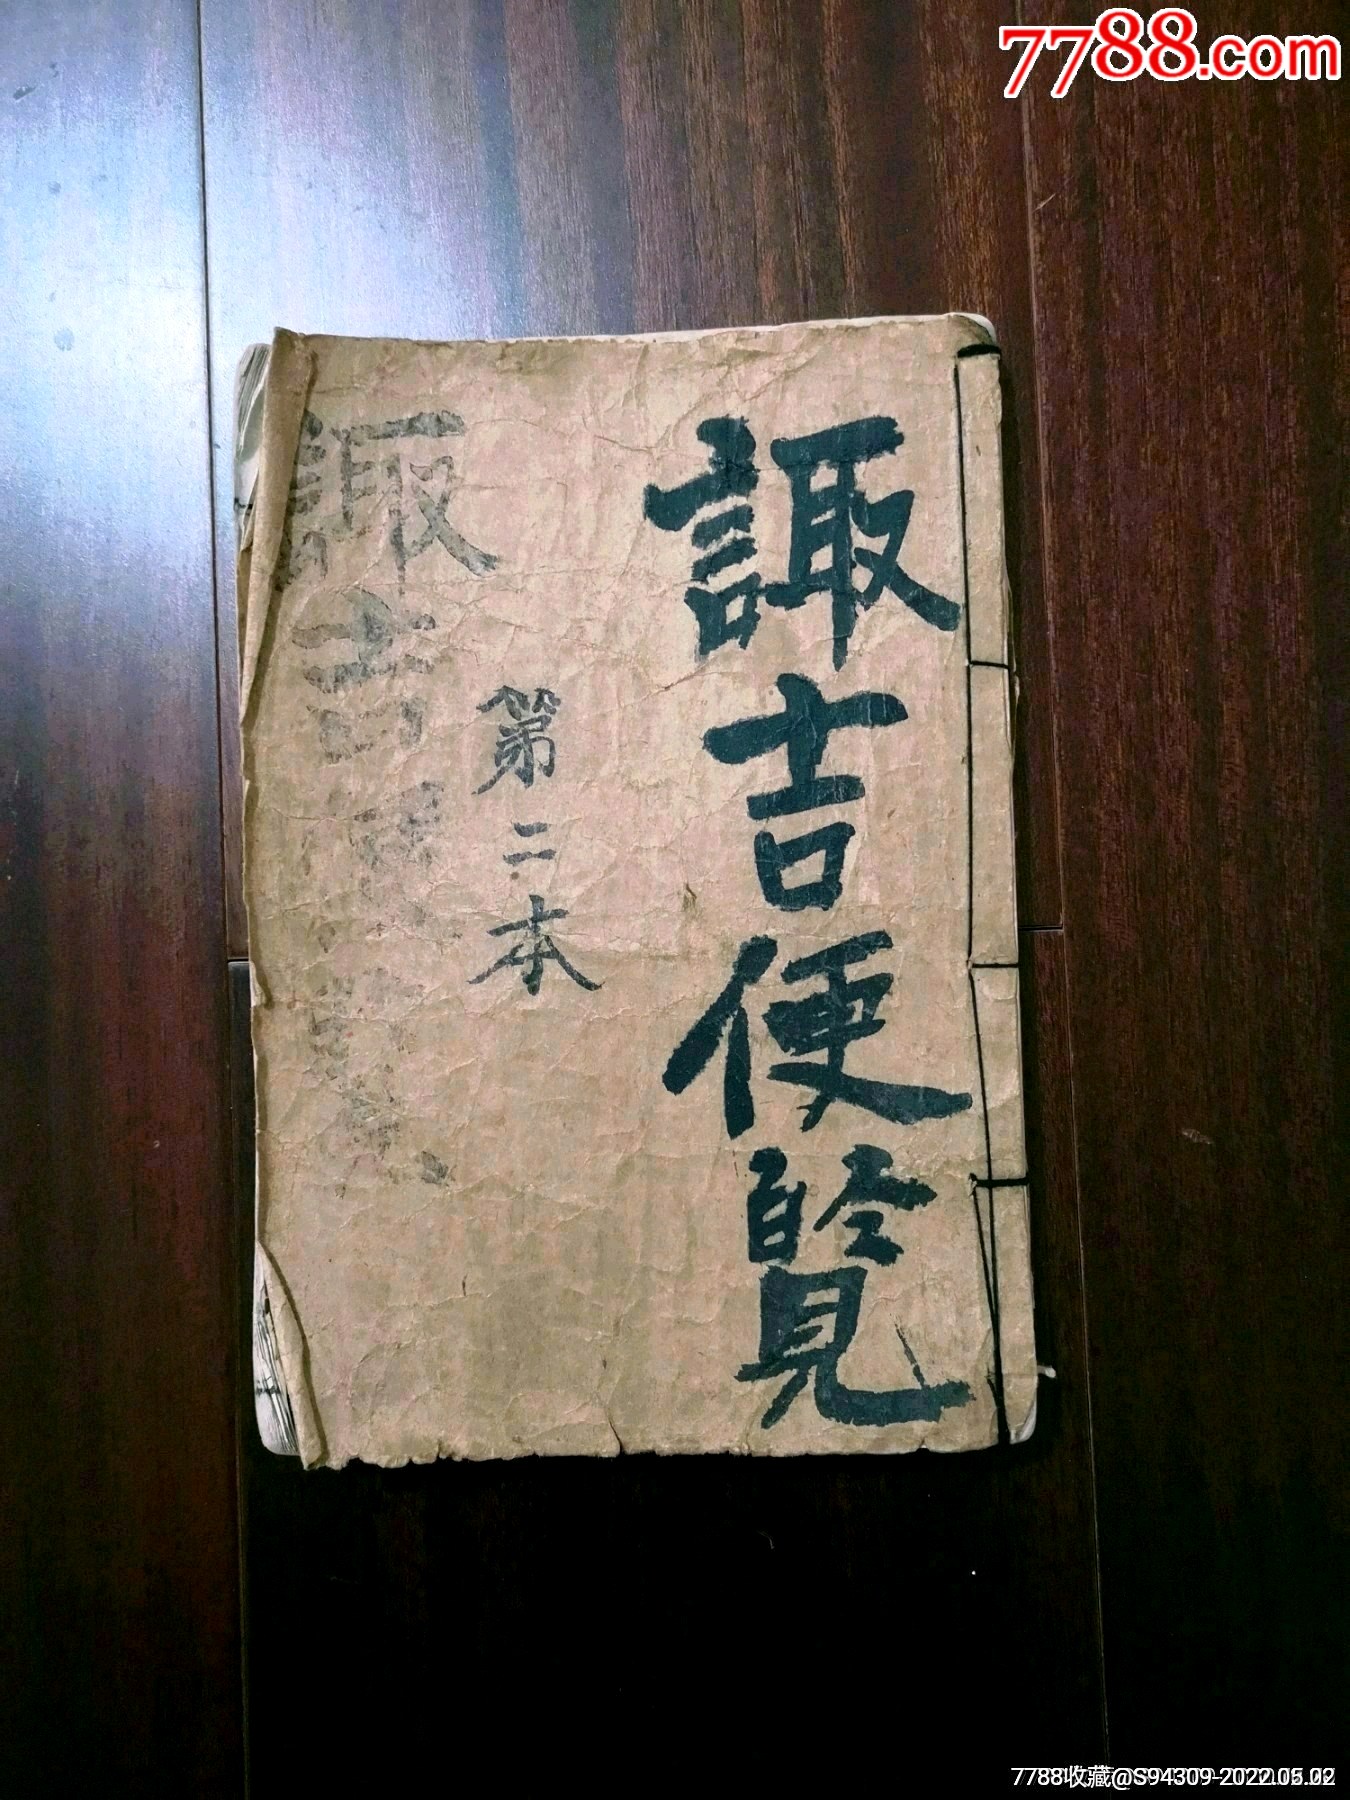 7788.com
諏吉便覽
第二本
諏吉便覽
7788收藏@S94309-2022.05.02